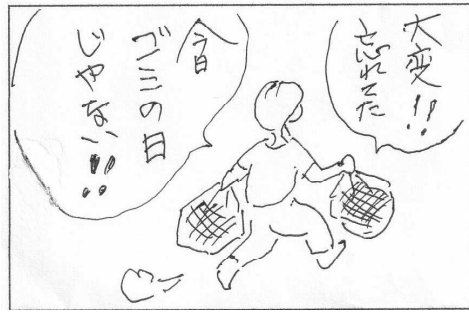 大変!!
忘れてた
今日
ゴミの日
じゃない!!